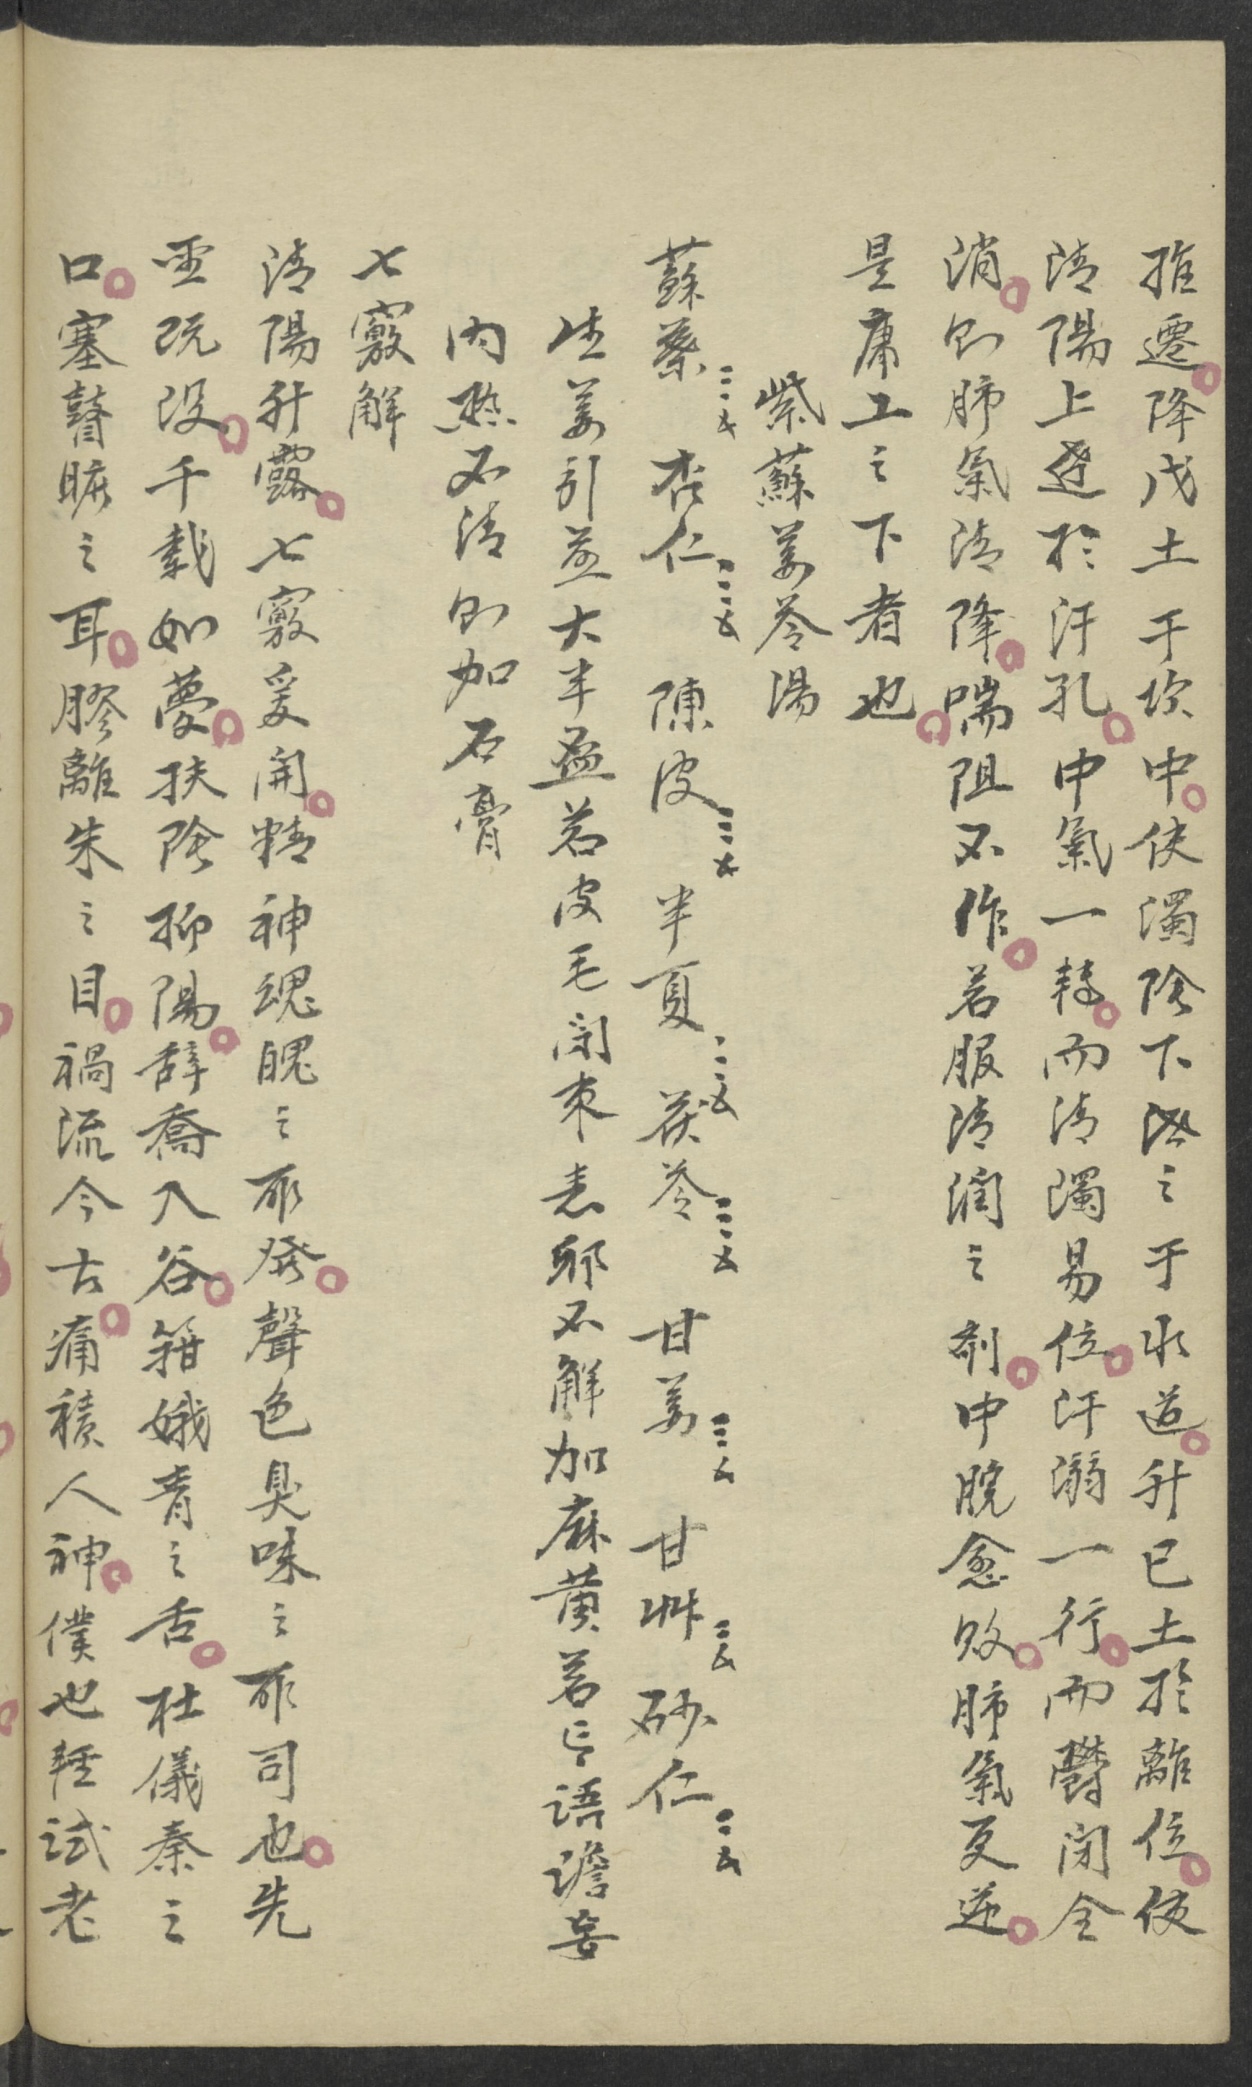 推遷降戊土于坎中使濁陰下泄之于水道升已土於離位使
清陽上達於汗孔中氣一轉而清濁易位汗溺一行而鬱閉全
消則肺氣清降喘阻不作若服清潤之劑中脘愈敗肺氣更逆
是庸工之下者也
紫蘇姜苓湯
蘇葉三又 杏仁三又 陳皮三又 半夏三又 茯苓三又 甘姜三又 甘艸二又 砂仁二又
生姜引煎大半盃若皮毛閉束表邪不解加麻黄若言語譫妄
内熱不清則加石膏
七竅解
清陽升露七竅爰開精神魂魄之所發聲色臭味之所司也先
聖既没千載如夢扶陰抑陽辭喬入谷箝娥青之舌杜儀秦之
口塞瞽曠之耳膠離朱之目禍流今古痛積人神僕也輕試老